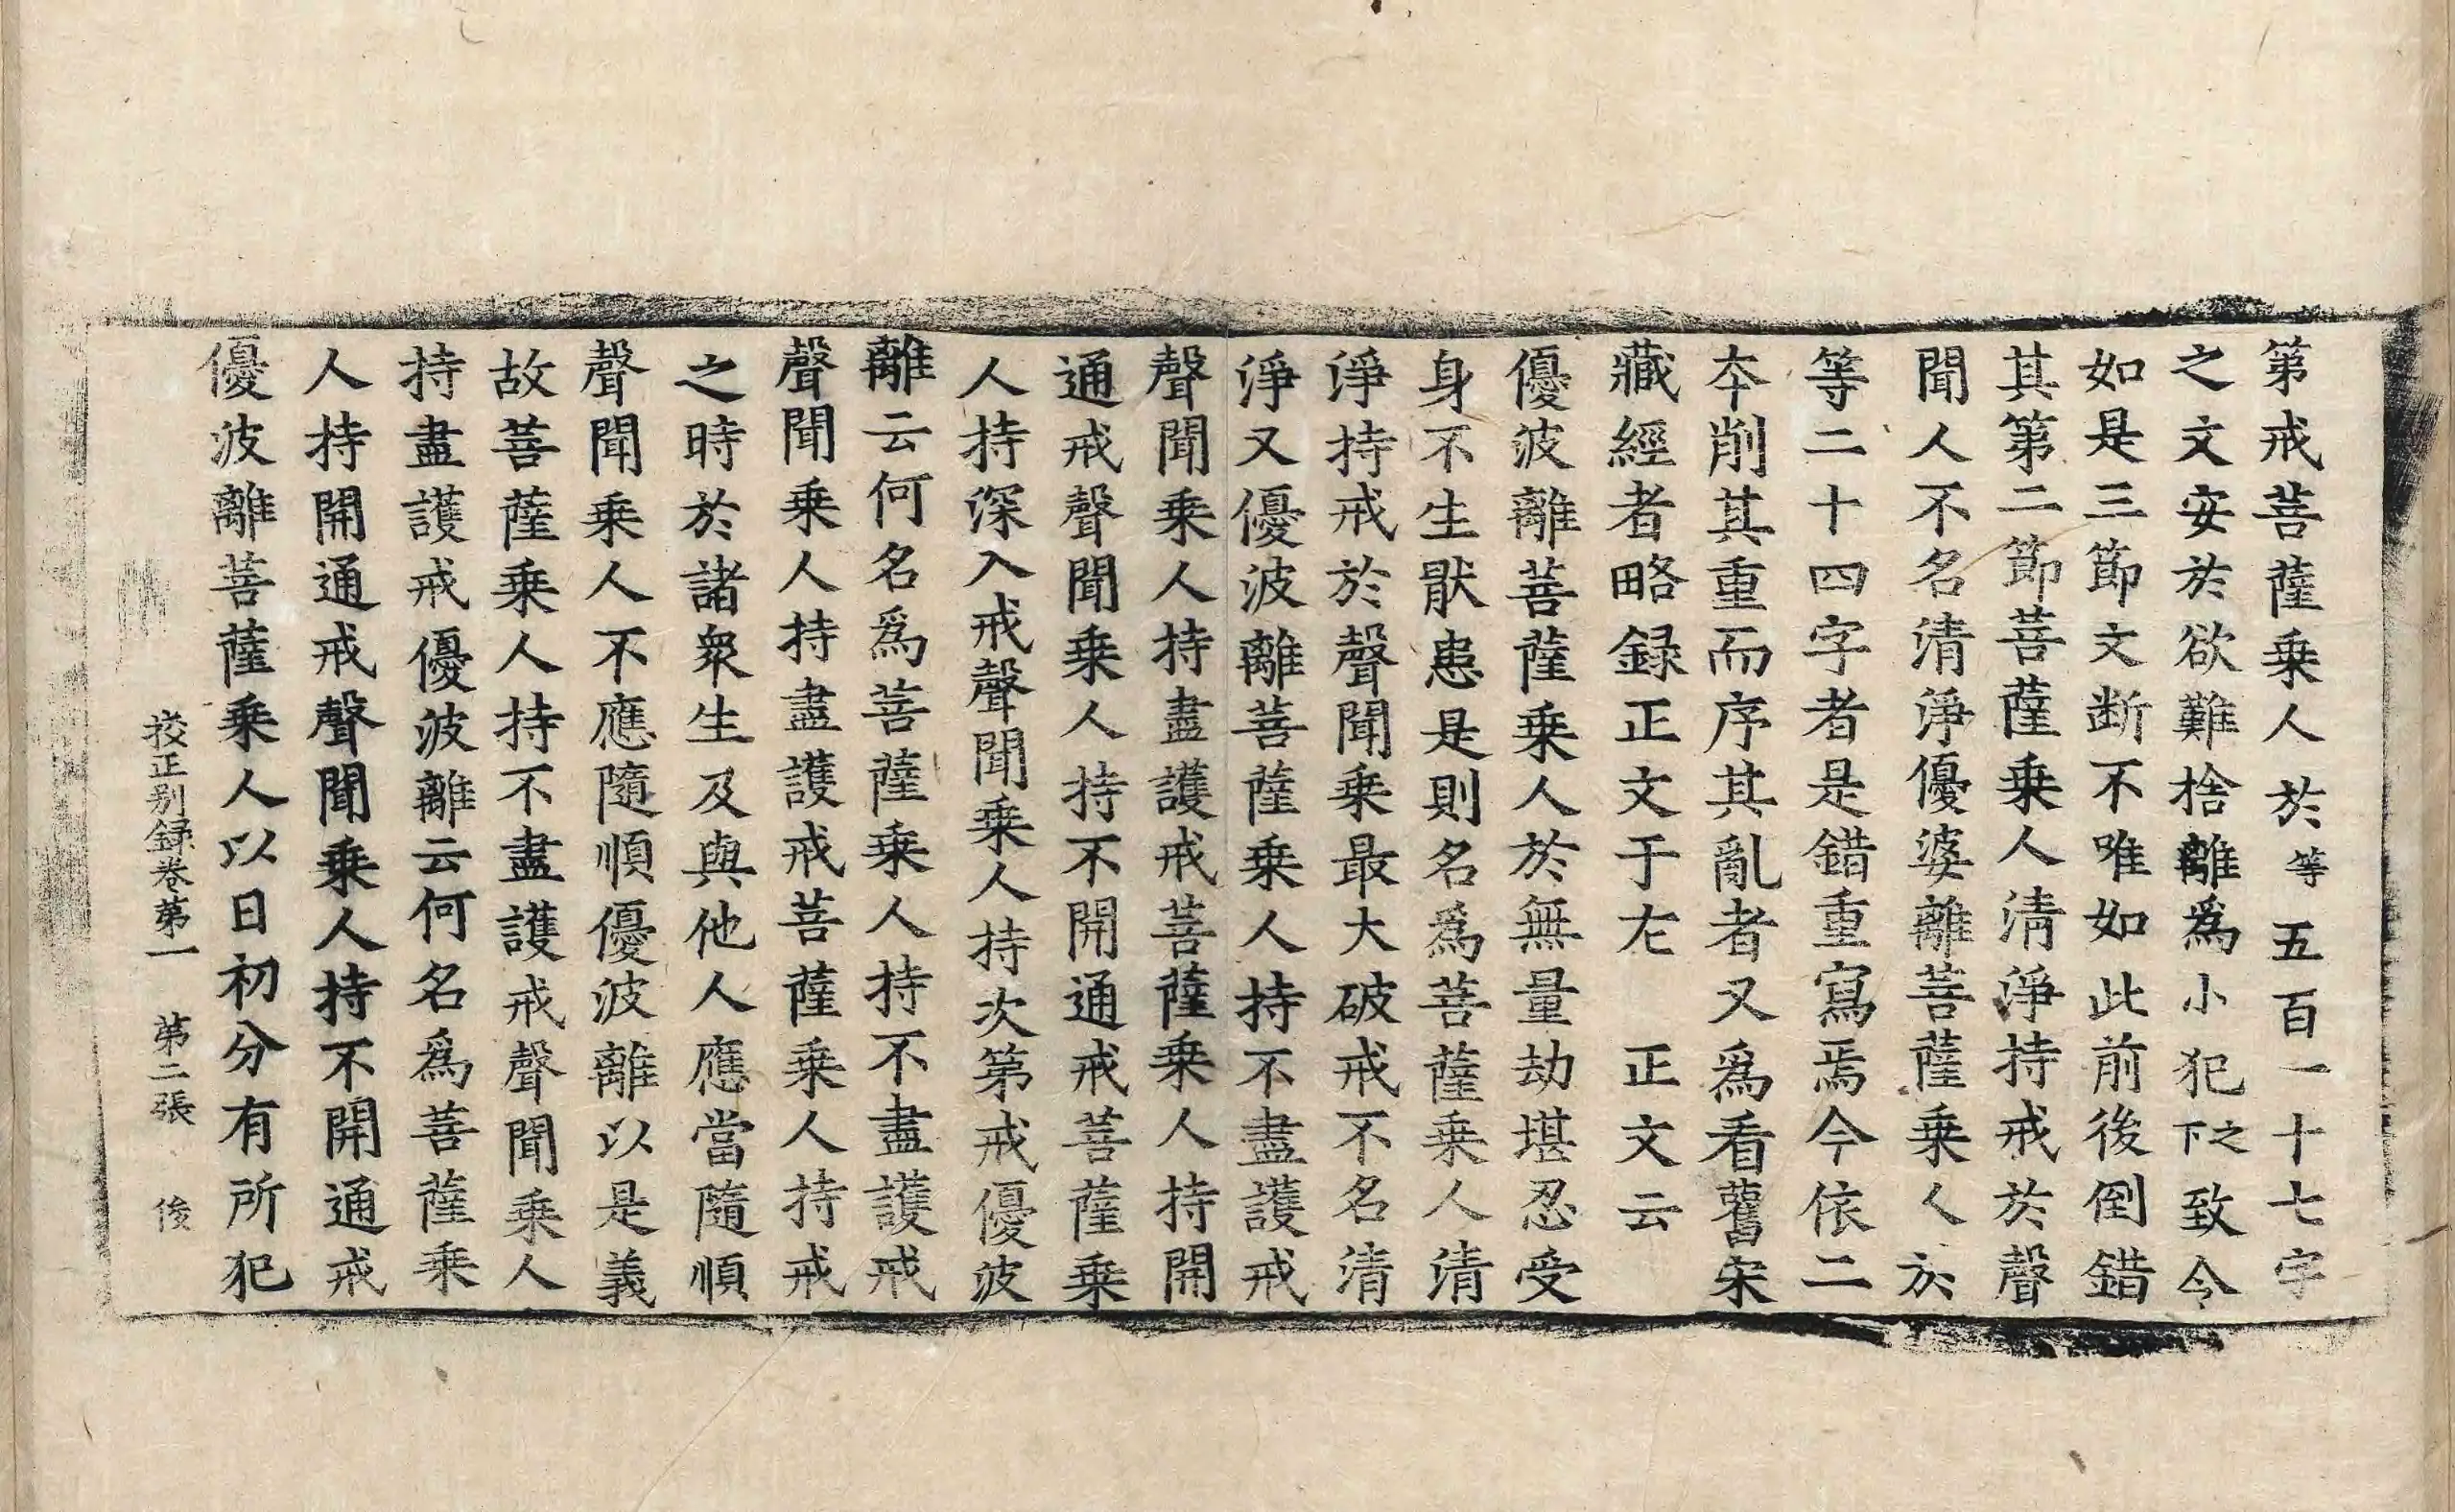 第戒菩薩乗人於等五百一十七字
之文安於欲難捨離為小犯之下致令
如是三節文断不唯如此前後倒錯
其第二節菩薩乗人清淨持戒於聲
聞人不名清淨優婆離菩薩乗人於
等二十四字者是錯重寫焉今依二
夲削其重而序其亂者又為看舊宋
藏經者略録正文于左　正文云
優波離菩薩乗人於無量劫堪忍受
身不生猒患是則名為菩薩乗人清
淨持戒於聲聞乗最大破戒不名清
淨又優波離菩薩乗人持不盡護戒
聲聞乗人持盡護戒菩薩乗人持開
通戒聲聞乗人持不開通戒菩薩乗
人持深入戒聲聞乗人持次第戒優波
離云何名為菩薩乗人持不盡護戒
聲聞乗人持盡護戒菩薩乗人持戒
之時於諸衆生及與他人應當隨順
聲聞乗人不應隨順優波離以是義
故菩薩乗人持不盡護戒聲聞乗人
持盡護戒優波離云何名為菩薩乗
人持開通戒聲聞乗人持不開通戒
優波離菩薩乗人以日初分有所犯
挍正别録卷第一　第二張　俊